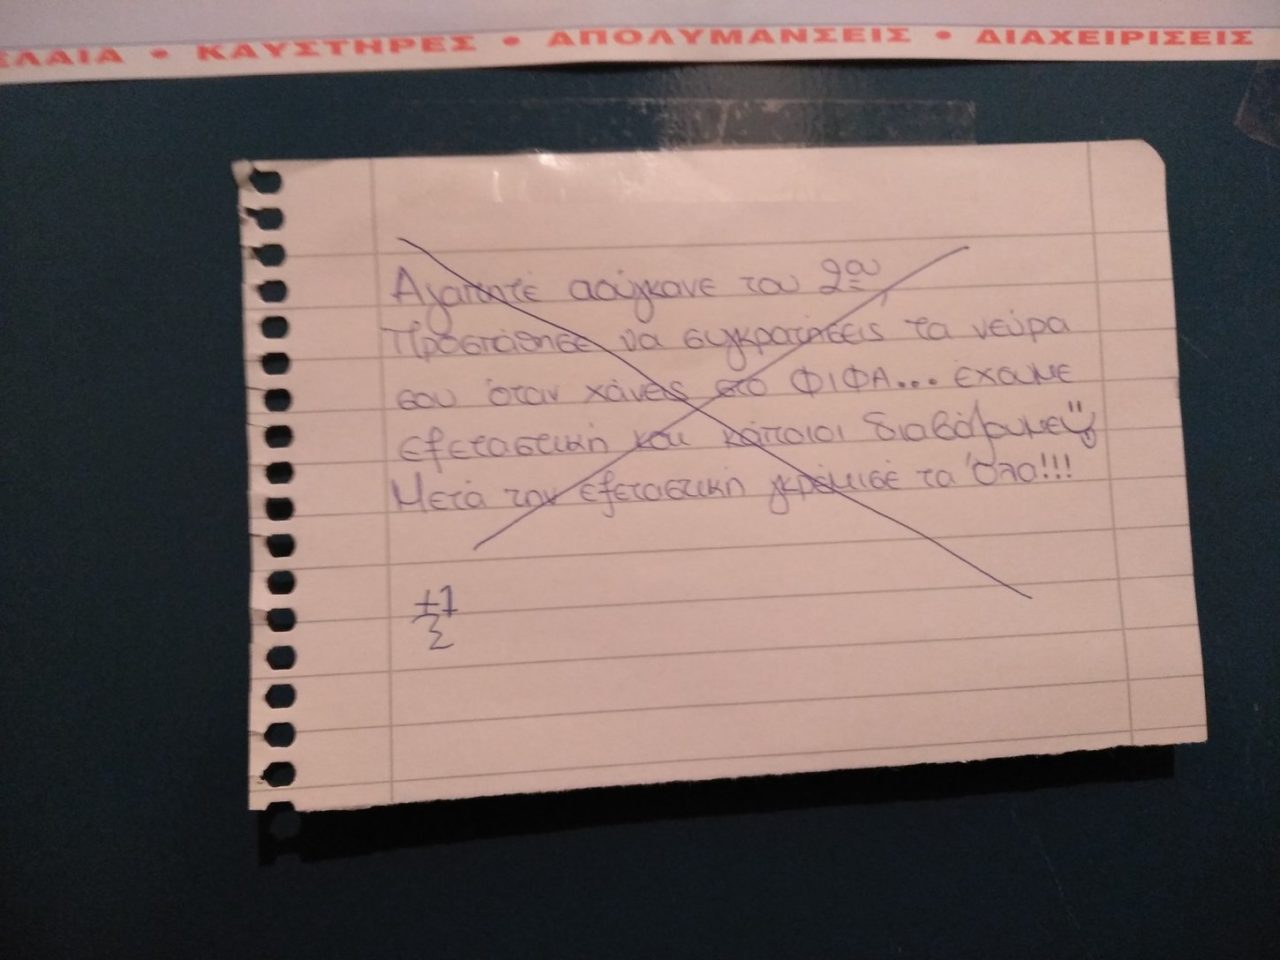 ΕΛΑΙΑ • ΚΑΥΣΤΗΡΕΣ • ΑΠΟΛΥΜΑΝΣΕΙΣ • ΔΙΑΧΕΙΡΙΣΕΙΣ
Αγαπητέ αούγκανε του 2ου,
Προσπάθησε να συγκρατήσεις τα νεύρα
σου όταν χάνεις στο ΦΙΦΑ... έχουμε
εξεταστική και κάποιοι διαβάζουμε
Μετά την εξεταστική γκρέμισέ τα όλα!!!
+1
Σ